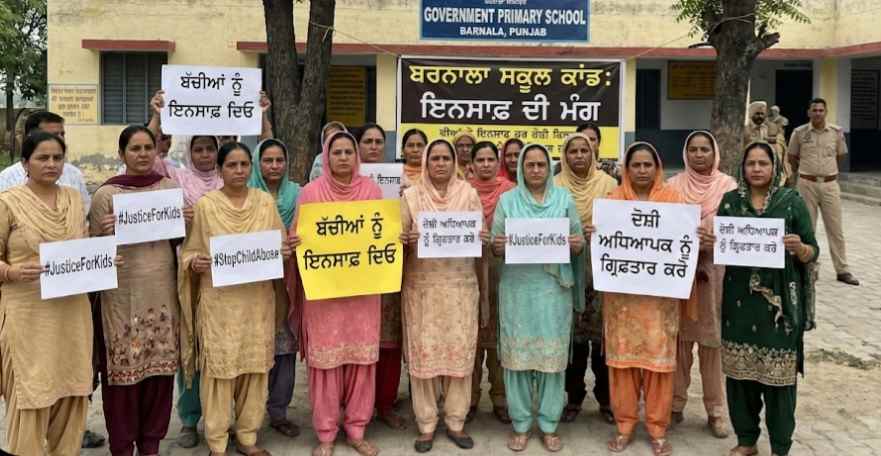 GOVERNMENT PRIMARY SCHOOL
BARNALA, PUNJAB
ਬਰਨਾਲਾ ਸਕੂਲ ਕਾਂਡ:
ਇਨਸਾਫ਼ ਦੀ ਮੰਗ
ਬੱਚੀਆਂ ਨੂੰ
ਇਨਸਾਫ਼ ਦਿਓ
#JusticeForKids
#JusticeForKids
#StopChildAbuse
ਬੱਚੀਆਂ ਨੂੰ
ਇਨਸਾਫ਼ ਦਿਓ
ਦੋਸ਼ੀ ਅਧਿਆਪਕ
ਨੂੰ ਗ੍ਰਿਫਤਾਰ ਕਰੋ
#JusticeForKids
ਦੋਸ਼ੀ
ਅਧਿਆਪਕ ਨੂੰ
ਗ੍ਰਿਫ਼ਤਾਰ ਕਰੋ
ਦੋਸ਼ੀ ਅਧਿਆਪਕ
ਨੂੰ ਗ੍ਰਿਫਤਾਰ ਕਰੋ